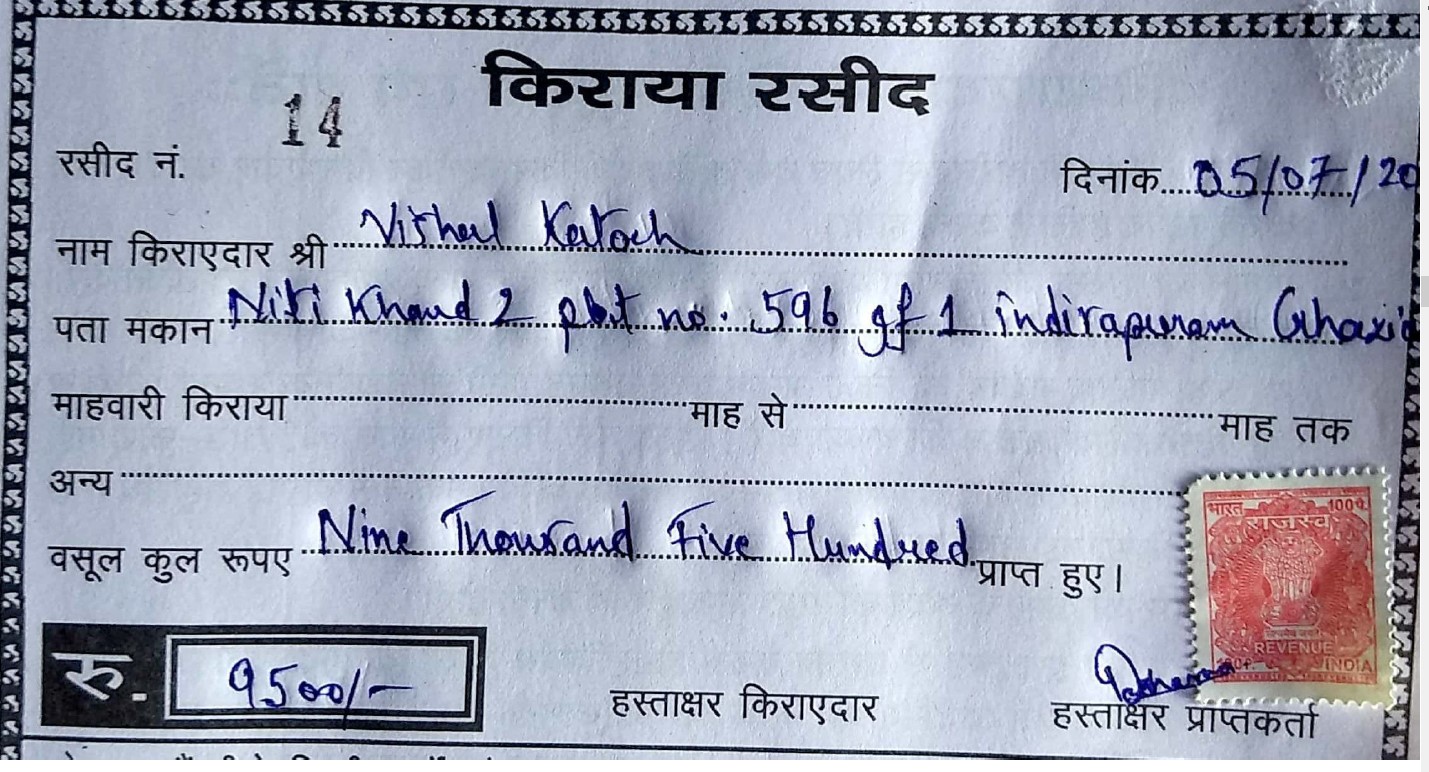 किराया रसीद
रसीद नं. 14
दिनांक.... 05/07/20
नाम किराएदार श्री Vishal Katoch
पता मकान Niti Khand 2 plot no. 596 gf 1 indirapuram Ghazi
माहवारी किराया माह से माह तक
अन्य
वसूल कुल रूपए Nine Thousand Five Hundred प्राप्त हुए।
रु. 9500/-
हस्ताक्षर किराएदार
हस्ताक्षर प्राप्तकर्ता
भारत 100प.
राजस्व
REVENUE
INDIA